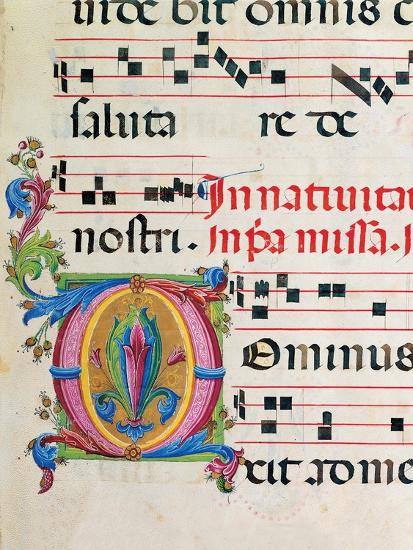 uide bit omnis c
saluta re de
In nativita
nostri. In p̃a missa. I
DOminus
xit ad me